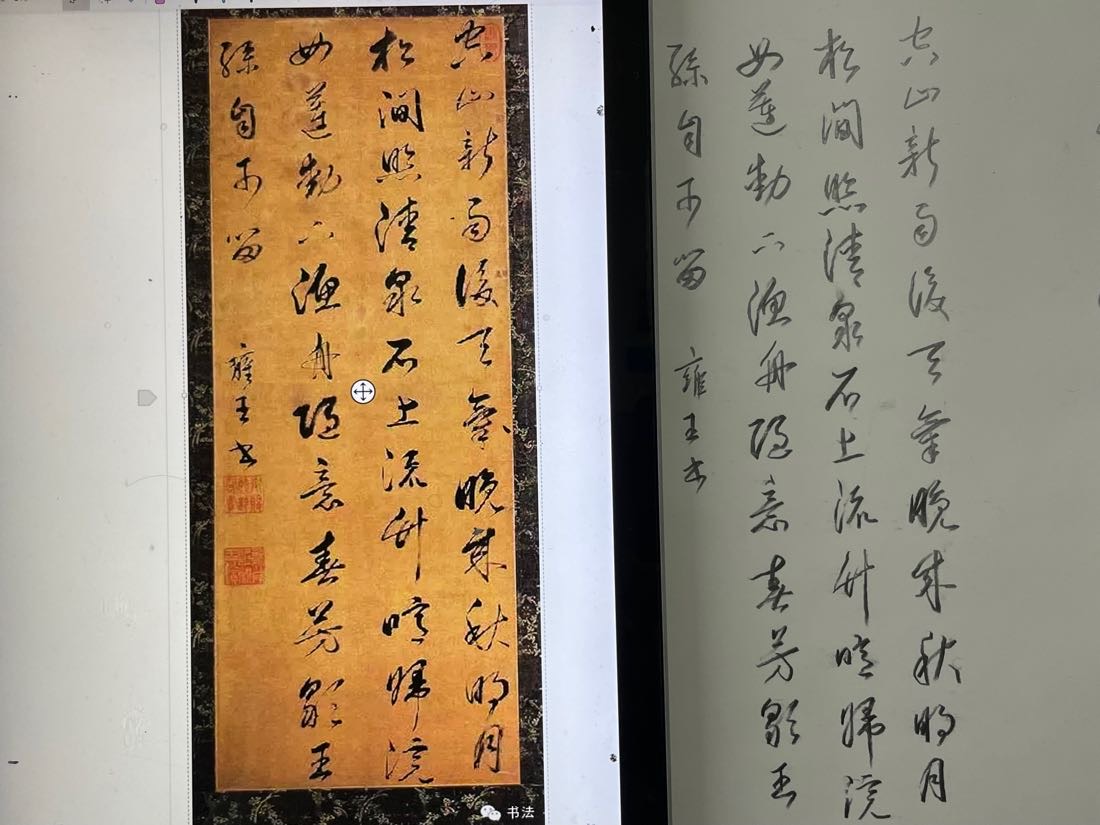 空山新雨後天氣晚來秋明月
松間照清泉石上流竹喧歸浣
女蓮動下漁舟隨意春芳歇王
孫自可留 雍王書
书法
空山新雨後天氣晚來秋明月
松間照清泉石上流竹喧歸浣
女蓮動下漁舟隨意春芳歇王
孫自可留 雍王書